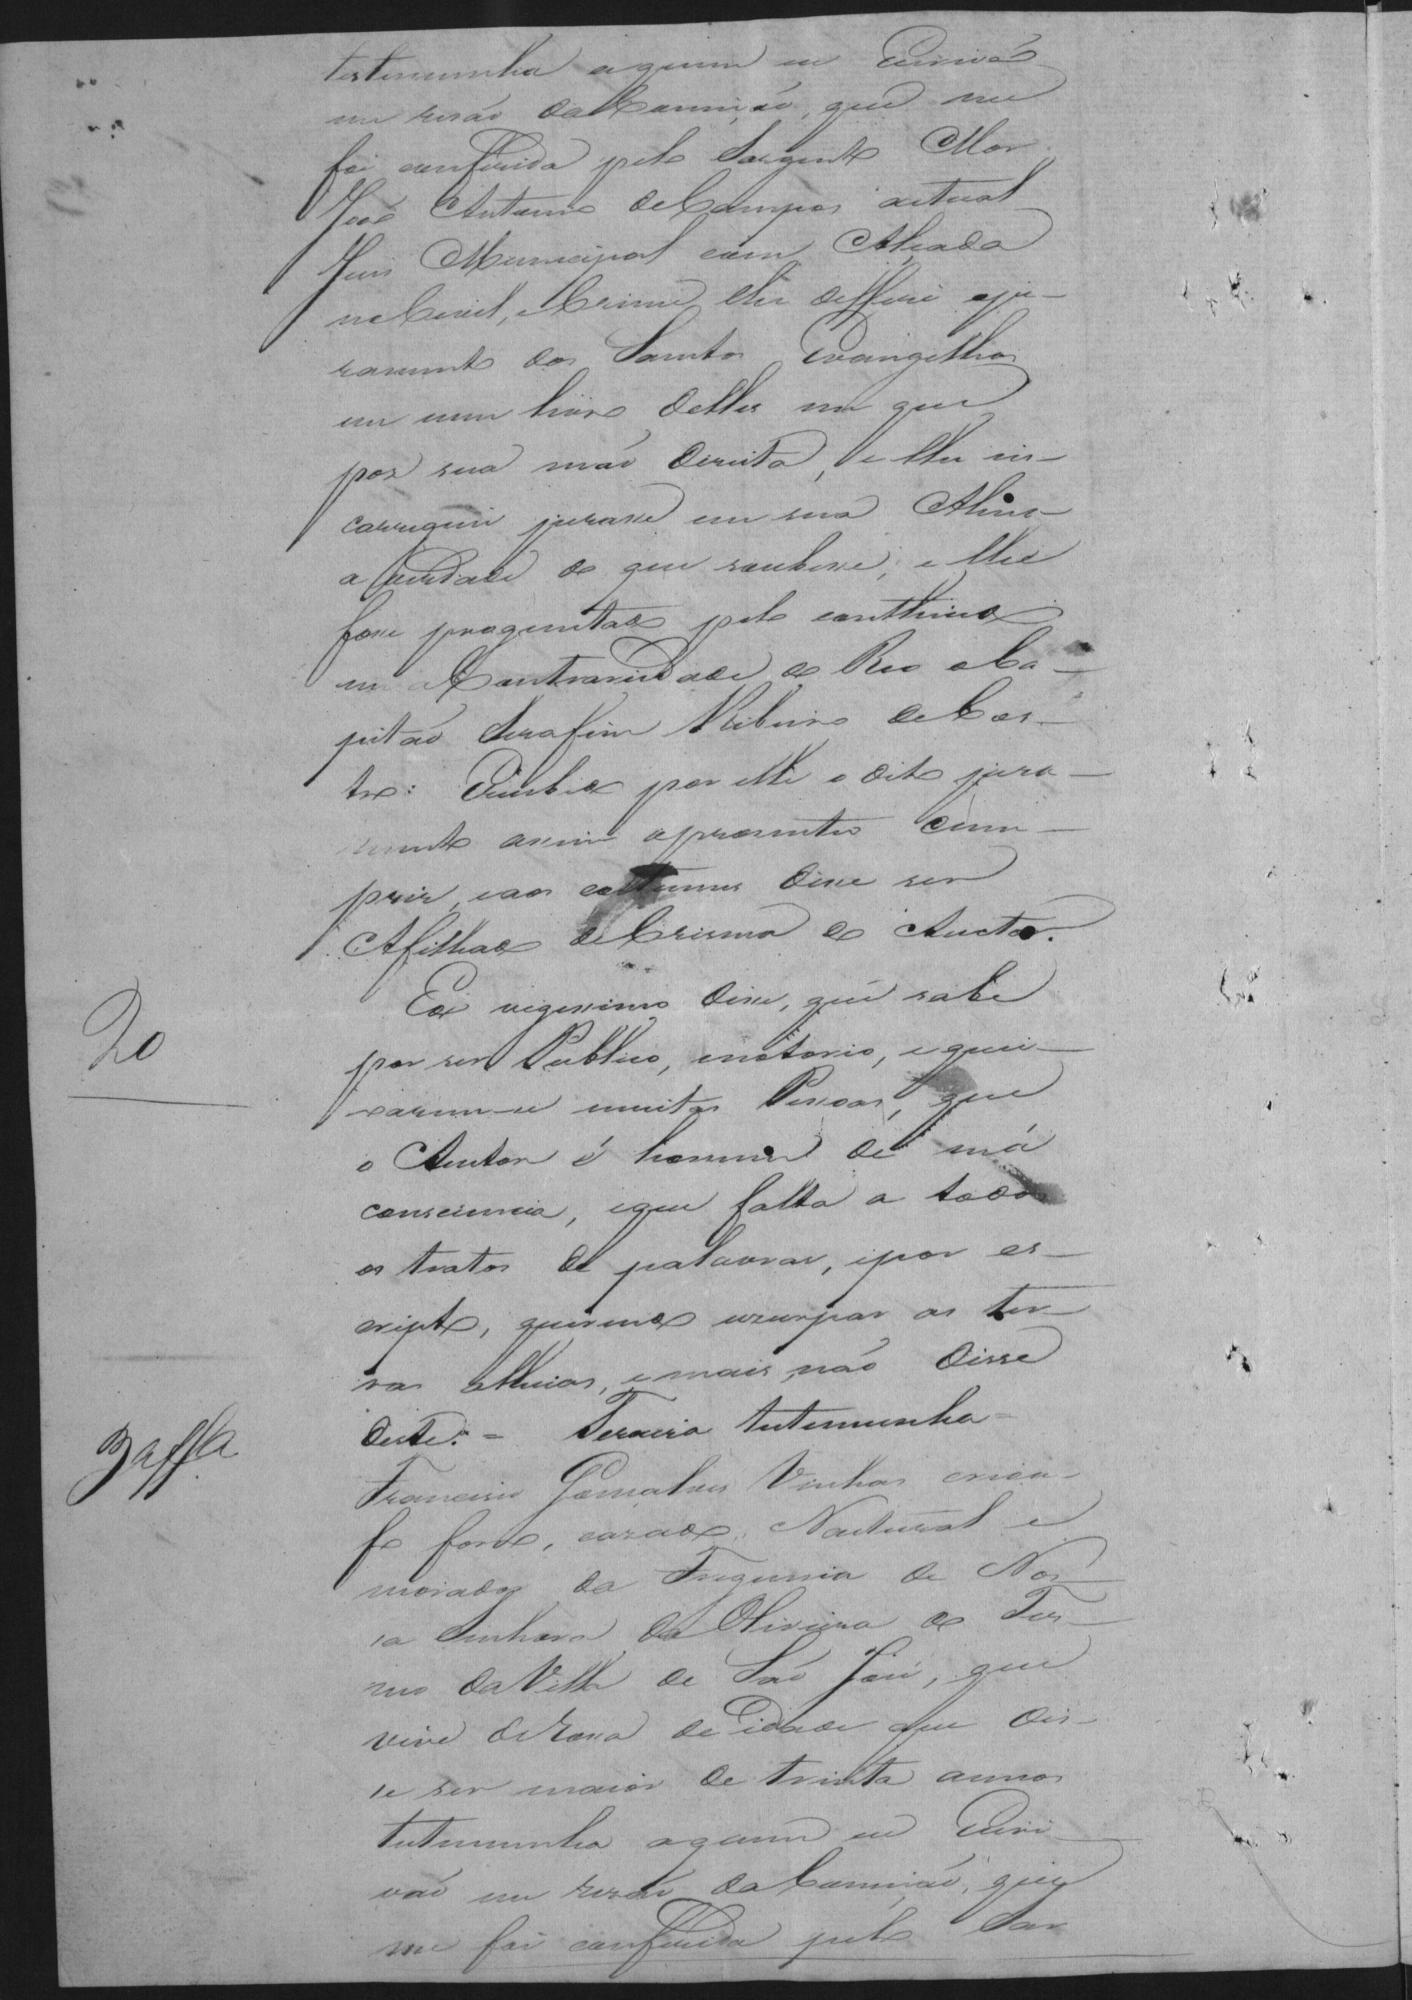 testemunha aquem eu Escrivaõ
em resaõ da Commiçaõ, que me
foi confirida pelo Sargento Mor
José Antunes de Campos actual
Juis Municipal com Alçada
no Civil, e Crime lhe defferi oju-
ramento dos Santos Evangelhos
em num livro delles em que
pos sua maõ direita, e lhe in-
carreguei jurase em sua Alma
a verdade do que soubese, e lhe
fose proguntado pelo conthiudo
na Contrariedade do Reo o Ca-
pitaõ Serafim Ribeiro de Cas-
tro: Recebido por elle o dito jura-
mento asim oprometeo cum-
prir, eaos costumes dise ser
Afilhado de Crisma do Auctor.
20
Eao vigessimo dise, que sabe
por ser Publico, enotorio, e quei-
xarem-se muitas Pesoas, que
o Autor é homem de má
consciencia, eque falta a todos
os tratos de palavras, epor es-
cripto, querendo uzurpar as ter-
ras alheias, emais naõ disse
deste. = Terceira testemunha =
3 affla
Francisco Gonsalves Vinhas criou-
lo forro, casado, Nactural e
morador da Freguesia de Nos-
sa Senhora da Oliveira do Ter-
mo da Villa de Saõ José, que
vive de rosa de idade que dis-
se ser maior de trinta annos
testemunha aquem eu Escri-
vaõ em resaõ da Commiçaõ, que
me foi confirida pelo Sar